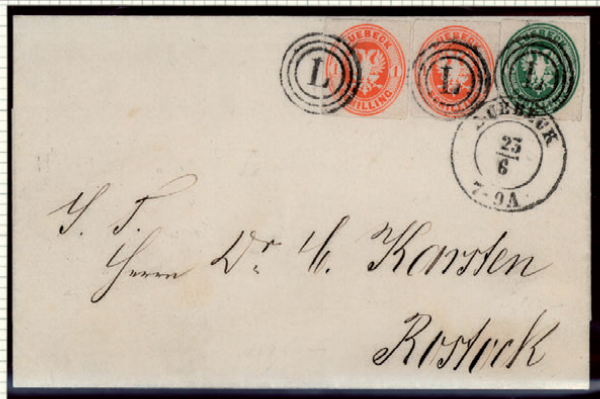 LUEBECK
1 1
SCHILLING
LUEBECK
SCHILLING
LUEBECK
L
L
L
LUEBECK
23
6
7-9A
S. T.
Herrn Dr. C. Karsten
Rostock